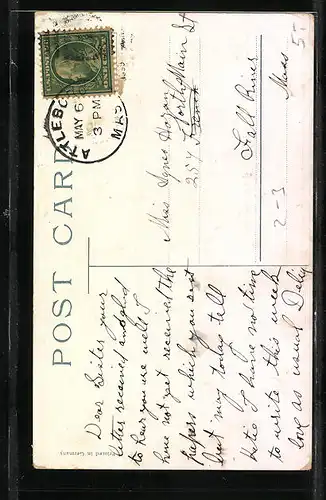 POST CARD
ATTLEBORO
MAY 6
3 PM
MASS
Miss Agnes Hogan
254 North Main St
Fall River
Mass
2-3
5-
Dear Sister your
letter received and glad
to hear you are well I
have not yet received the
papers which you sent
but may today tell
Katie I have no time
to write this week
love as usual Delia
Printed in Germany